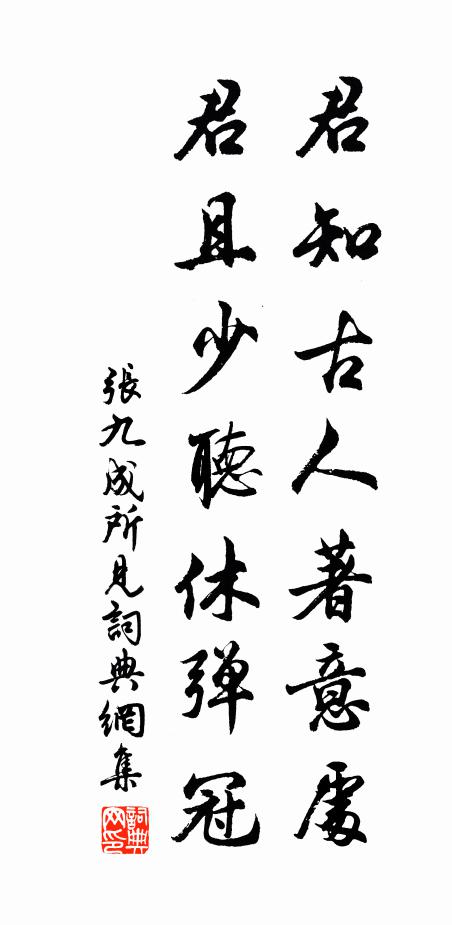 君知古人著意處
君且少聽休彈冠
張九成所見詞典網集
詞典網印